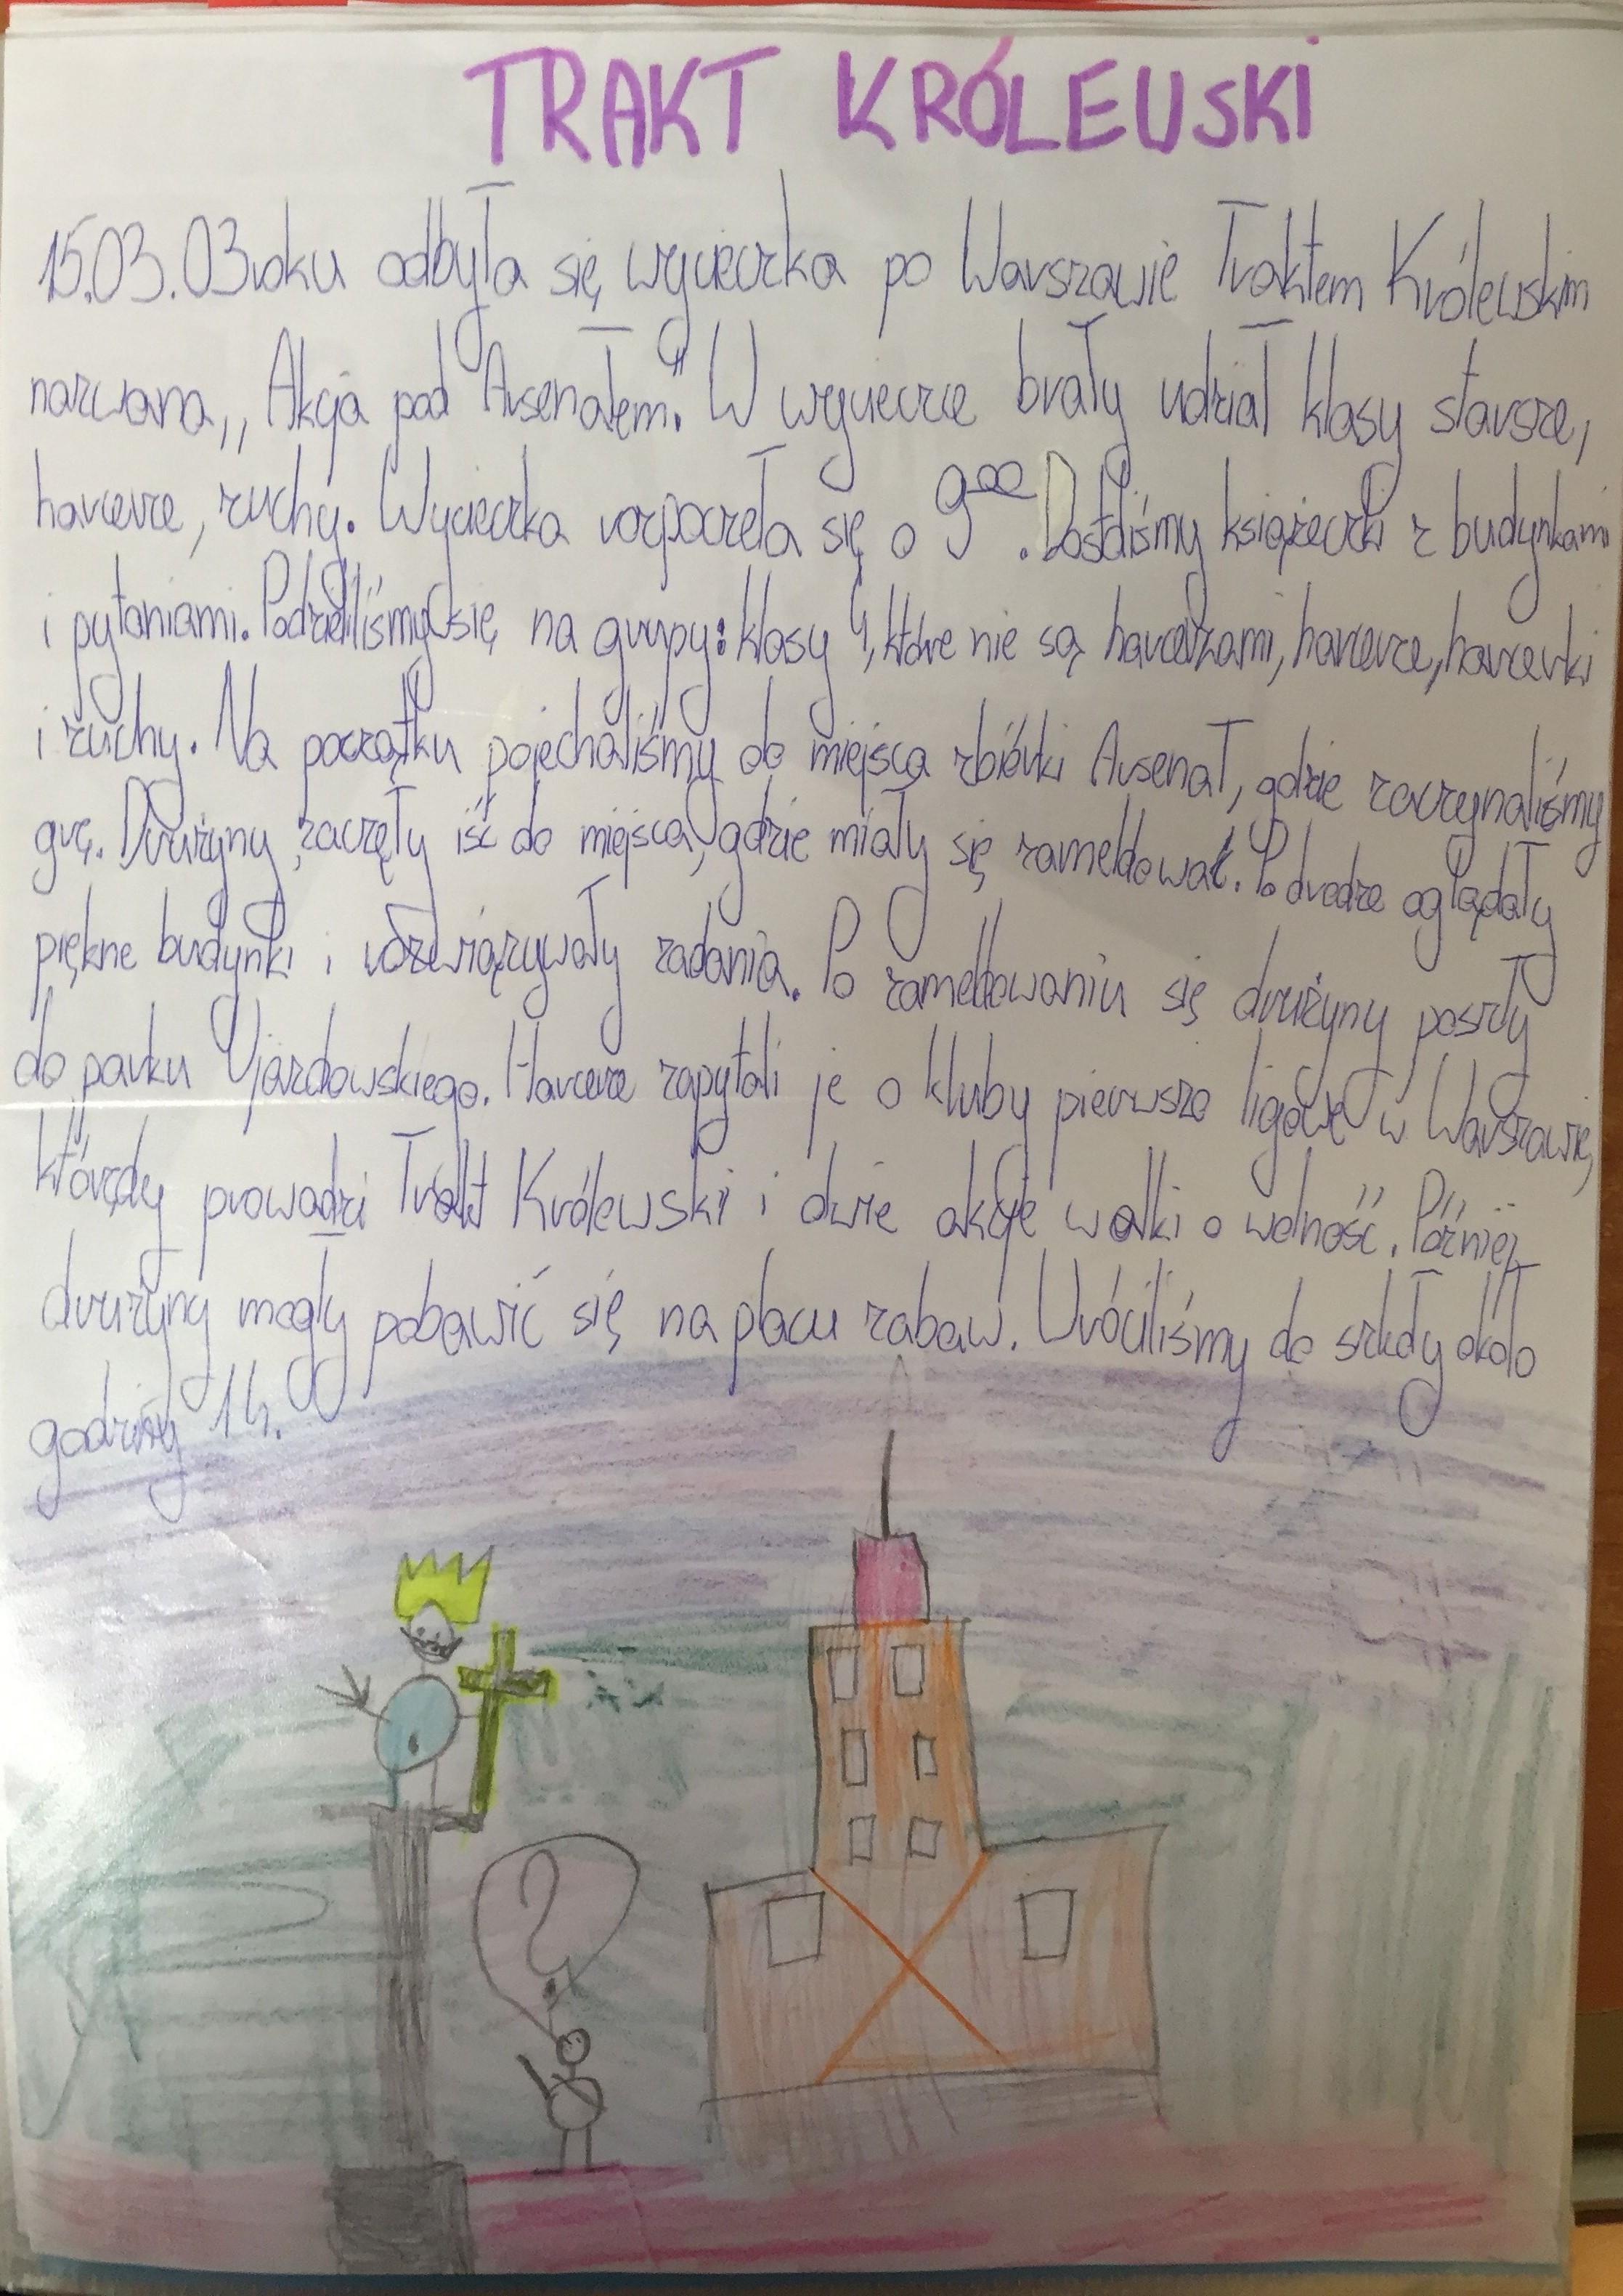 TRAKT KRÓLEWSKI
15.03.03roku odbyła się wycieczka po Warszawie Traktem Królewskim
nazwana,, Akcja pod Arsenałem." W wycieczce brały udział klasy starsze,
harcerze, zuchy. Wycieczka rozpoczeła się o 9⁰⁰. Dostaliśmy książeczki z budynkami
i pytaniami. Podzieliliśmy się na grupy: klasy 4, które nie są harcerzami, harcerze, harcerki
i zuchy. Na początku pojechaliśmy do miejsca zbiórki Arsenał, gdzie zaczynaliśmy
grę. Drużyny zaczęły iść do miejsca, gdzie miały się zameldować. Po drodze oglądały
piękne budynki i rozwiązywały zadania. Po zameldowaniu się drużyny poszły
do parku Ujazdowskiego. Harcerze zapytali je o kluby pierwszo ligowe w Warszawie,
którędy prowadzi Trakt Królewski i dwie akcje walki o wolność. Później
drużyny mogły pobawić się na placu zabaw. Wróciliśmy do szkoły około
godziny 14.
?